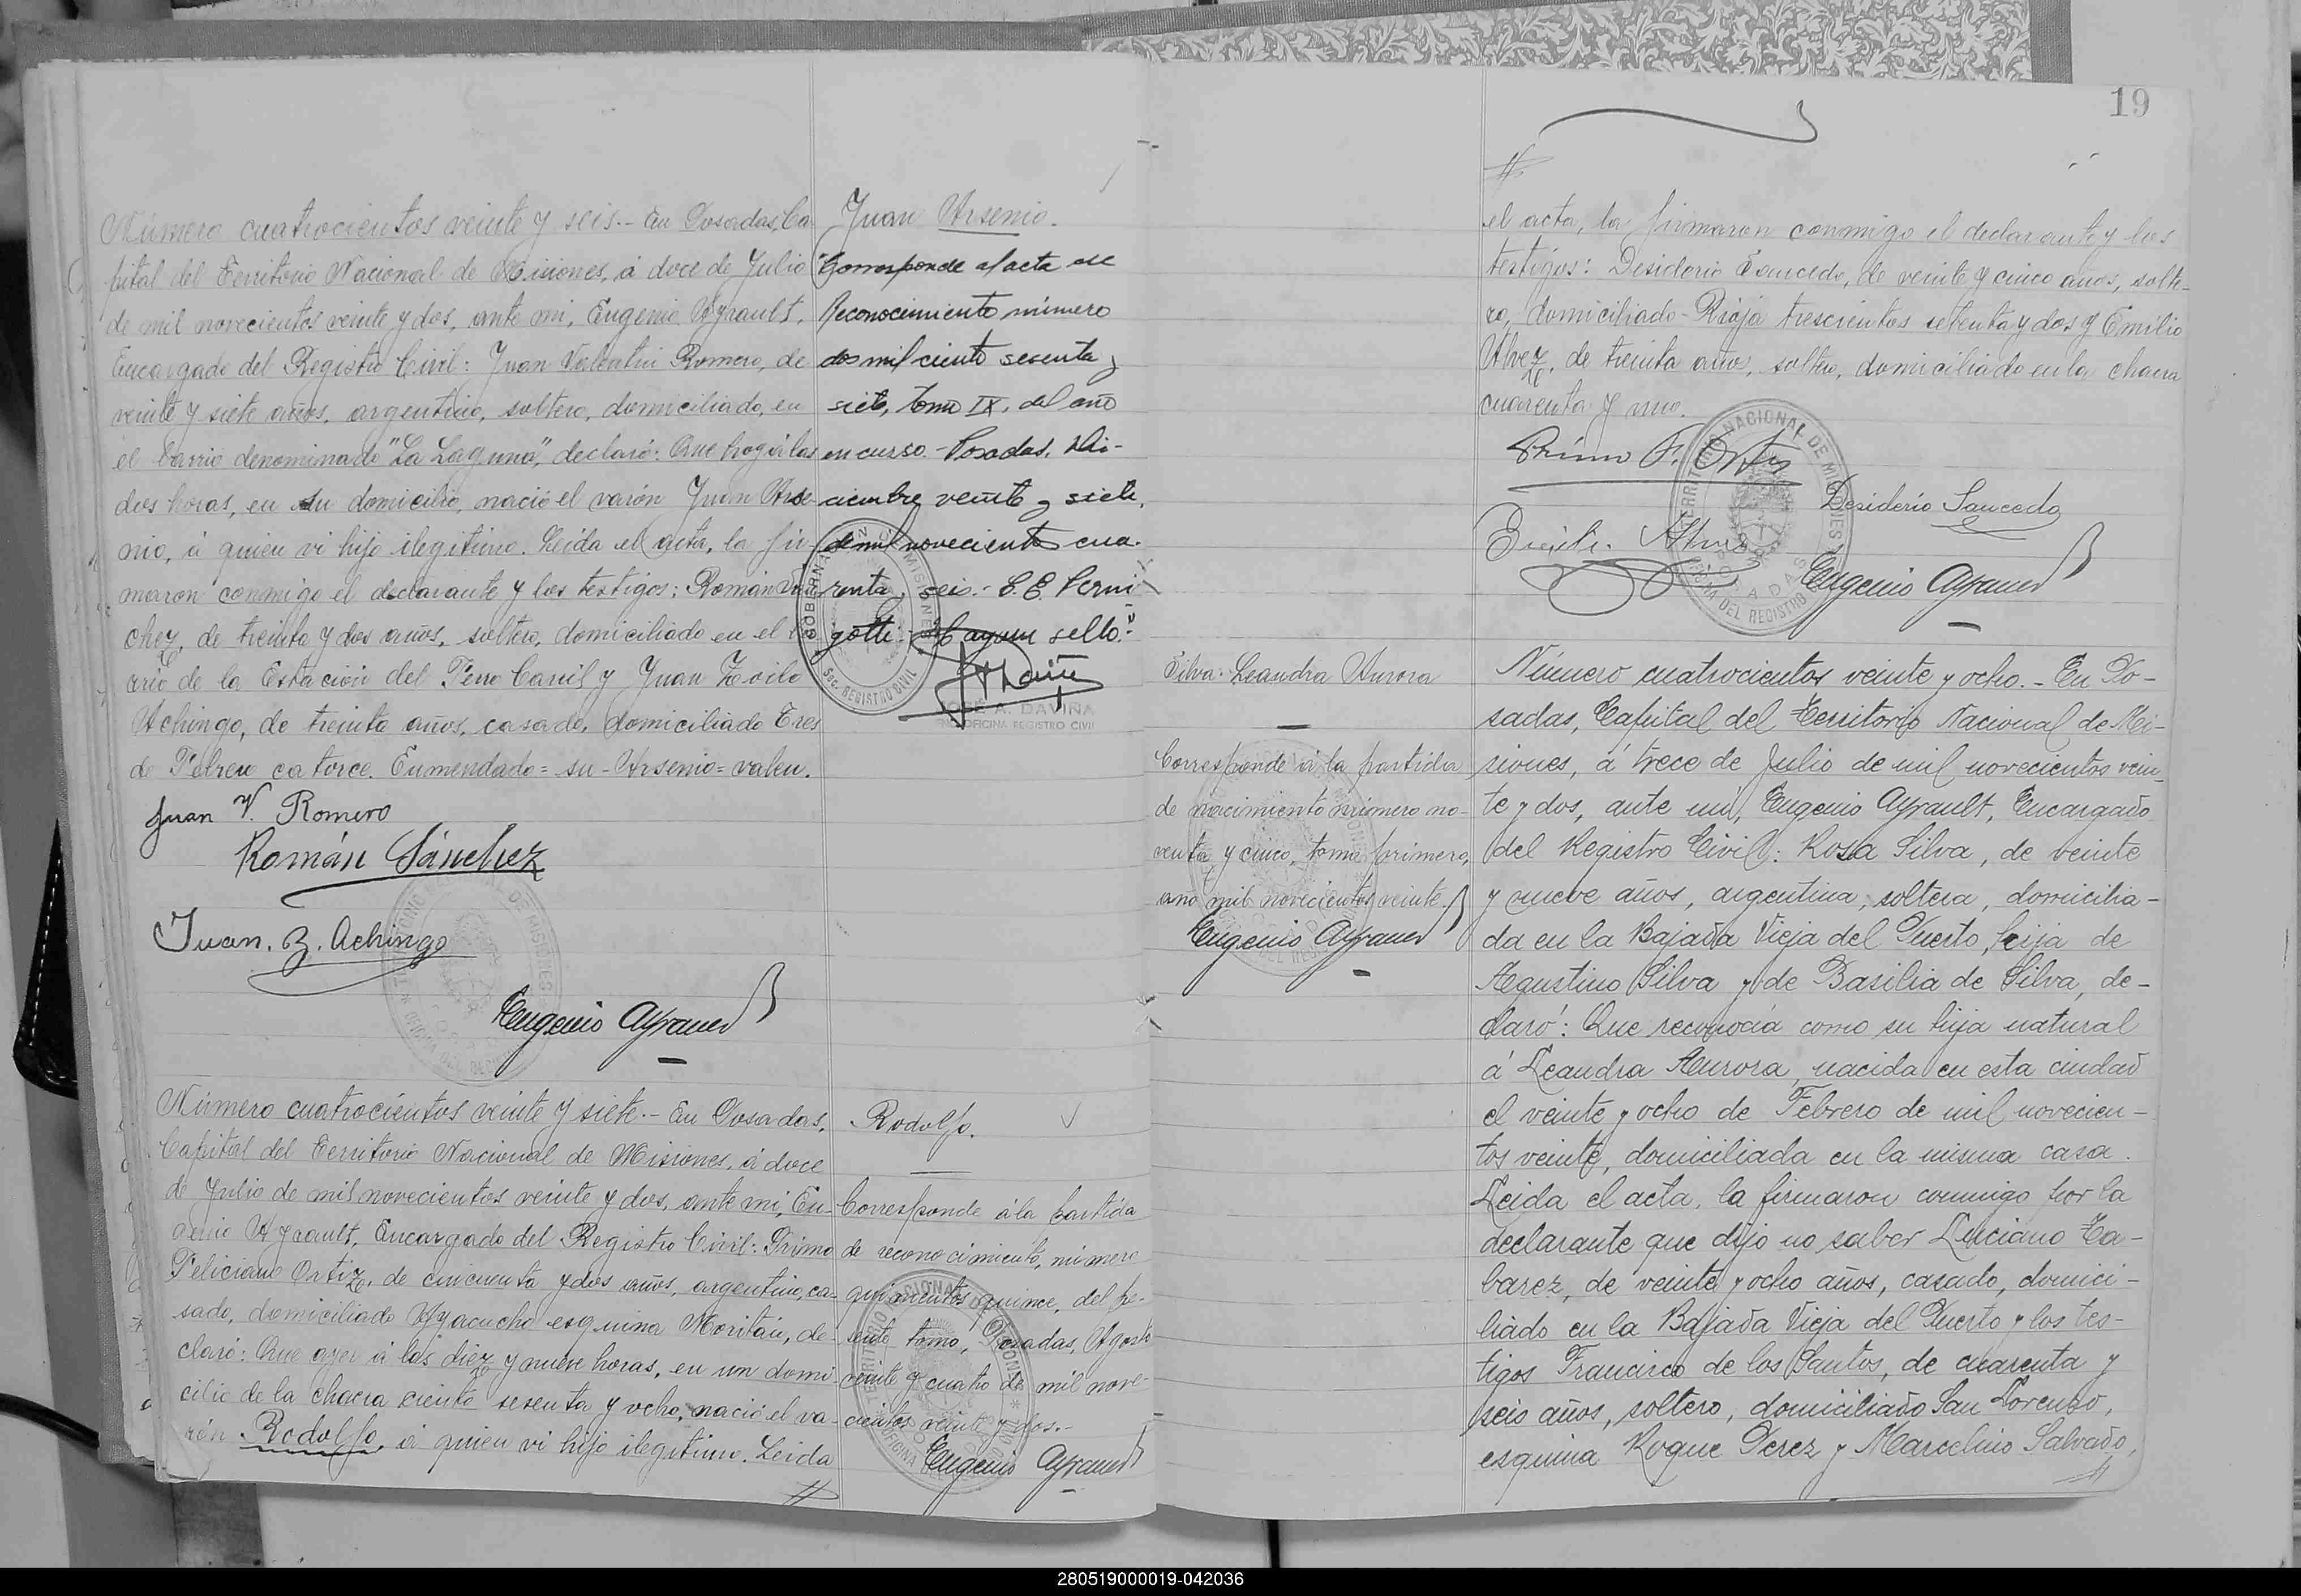 Número cuatrocientos veinte y seis.- En Posadas, Ca
pital del Territorio Nacional de Misiones, á doce de Julio
de mil novecientos veinte y dos, ante mi, Eugenio Ayrault,
Encargado del Registro Civil: Juan Valentin Romero, de
veinte y siete años, argentino, soltero, domiciliado, en
el barrio denominado "La Laguna", declaró: Que hoy á las
dos horas, en su domicilio, nació el varón Juan Arse-
nio, á quien vi hijo ilegitimo. Leida el acta, la fir-
maron conmigo el declarante y los testigos: Román Sán
chez, de treinta y dos años, soltero, domiciliado en el
de la Estación del Ferro Carril y Juan Zoilo
Achingo, de treinta años, casado, domiciliado Tres
de Febrero catorce. Enmendado = su - Arsenio = valen.
Juan V. Romero
Román Sánchez
Juan. Z. Achingo
Eugenio Ayrault
Juan Arsenio.
Corresponde al acta de
Reconocimiento número
dos mil ciento sesenta y
siete, tomo IX, del año
en curso.- Posadas, Di-
ciembre veinte y siete,
de mil novecientos cua-
renta y seis.- E.E. Perni
gotti.- Hay un sello.-
GOBERNACION MISIONES
SEC. REGISTRO CIVIL
JOSÉ A. DAVIÑA
OFICINA REGISTRO CIVIL
Número cuatrocientos veinte y siete.- En Posadas,
Capital del Territorio Nacional de Misiones, á doce
de Julio de mil novecientos veinte y dos, ante mi, Eu-
genio Ayrault, Encargado del Registro Civil: Primo
Feliciano Ortiz, de cincuenta y dos años, argentino, ca-
sado, domiciliado Ayacucho esquina Moritán, de-
claró: Que ayer á las diez y nueve horas, en un domi
cilio de la chacra ciento sesenta y ocho, nació el va-
rón Rodolfo, á quien vi hijo ilegitimo. Leida
Rodolfo.
Corresponde á la partida
de reconocimiento, número
quinientos quince, del pre-
sente tomo, Posadas, Agosto
veinte y cuatro de mil nove-
cientos veinte y dos.-
Eugenio Ayrault
19
el acta, la firmaron conmigo el declarante y los
testigos: Desiderio Saucedo, de veinte y cinco años, solte-
ro, domiciliado Rioja trescientos setenta y dos y Emilio
Alvez, de treinta años, soltero, domiciliado en la chacra
cuarenta y uno.
Primo F. Ortiz
Desiderio Saucedo
Emilio Alves
Eugenio Ayrault
TERRITORIO NACIONAL DE MISIONES
POSADAS
OFICINA DEL REGISTRO CIVIL
Silva: Leandra Aurora
Corresponde á la partida
de nacimiento número no-
venta y cinco, tomo primero,
año mil novecientos veinte.
Eugenio Ayrault
Número cuatrocientos veinte y ocho.- En Po-
sadas, Capital del Territorio Nacional de Mi-
siones, á trece de Julio de mil novecientos vein-
te y dos, ante mi, Eugenio Ayrault, Encargado
del Registro Civil: Rosa Silva, de veinte
y nueve años, argentina, soltera, domicilia-
da en la Bajada Vieja del Puerto, hija de
Agustino Silva y de Basilia de Silva, de-
claró: Que reconocía como su hija natural
á Leandra Aurora, nacida en esta ciudad
el veinte y ocho de Febrero de mil novecien-
tos veinte, domiciliada en la misma casa.
Leida el acta, la firmaron conmigo por la
declarante que dijo no saber Luciano Ta-
barez, de veinte y ocho años, casado, domici-
liado en la Bajada Vieja del Puerto y los tes-
tigos Francisco de los Santos, de cuarenta y
seis años, soltero, domiciliado San Lorenzo,
esquina Roque Perez y Marcelino Salvado,
280519000019-042036